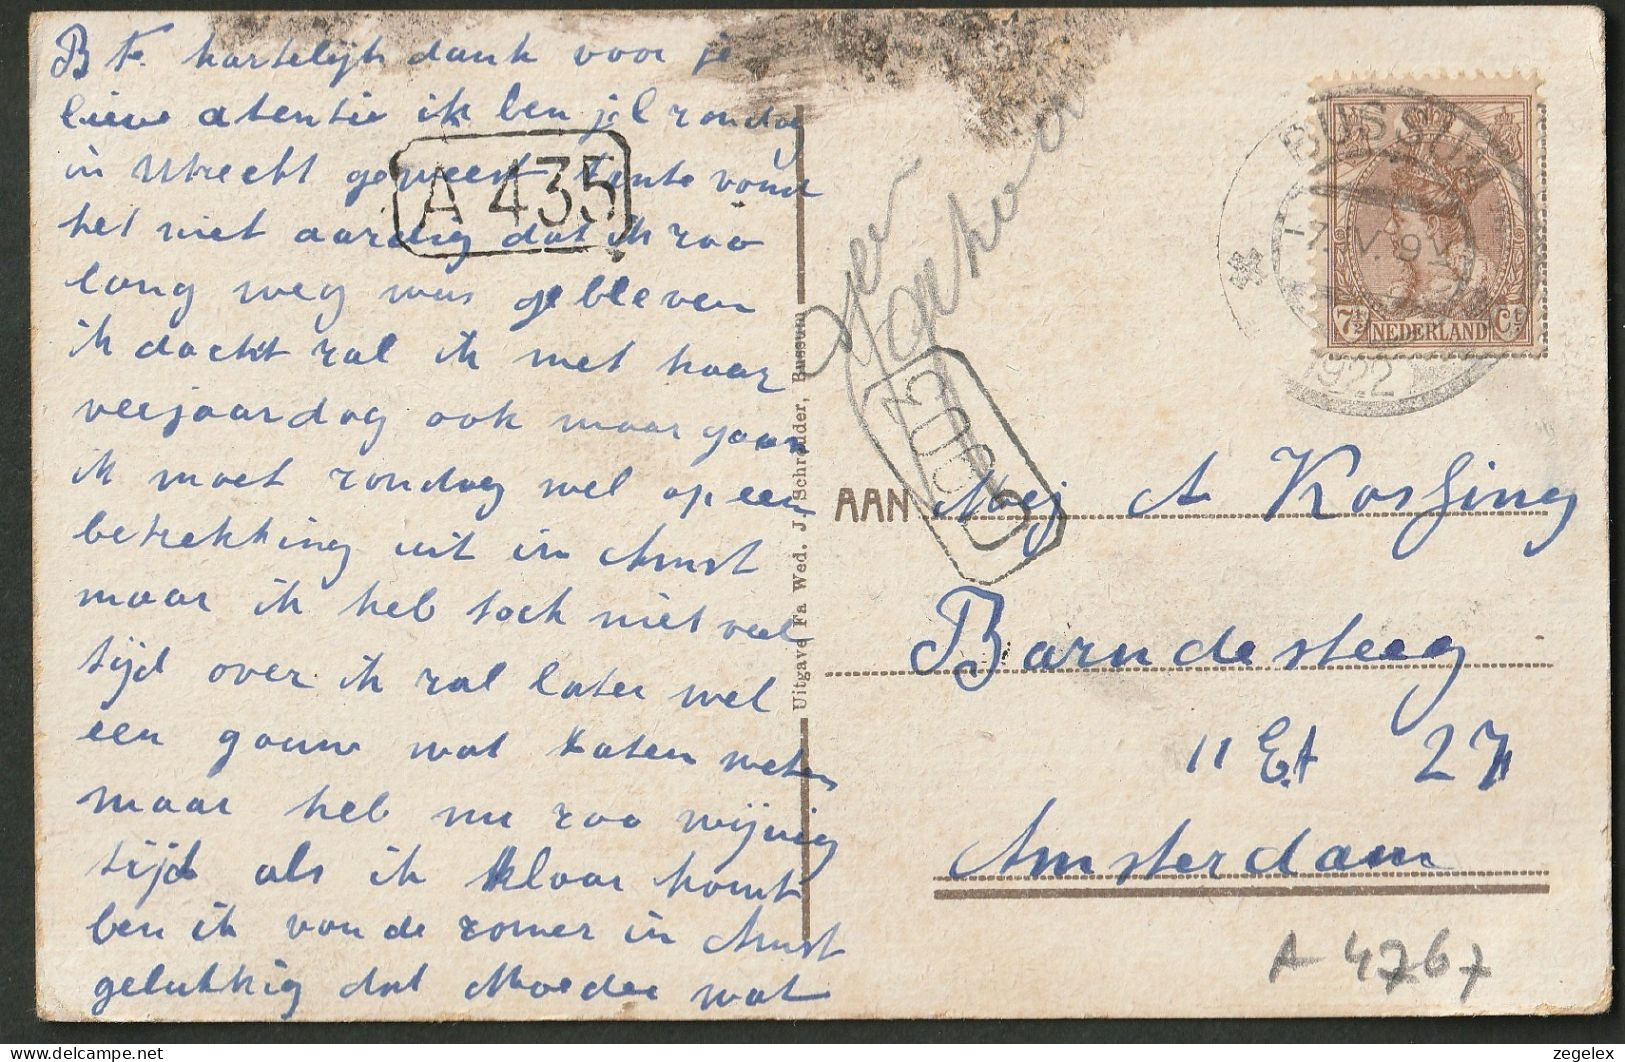 B F. hartelijk dank voor je
lieve atentie ik ben j.l zondag
in Utrecht geweest tante vond
het niet aardig dat ik zoo
lang weg was gebleven
ik dacht zal ik met haar
verjaardag ook maar gaan
ik moet zondag wel op een
betrekking uit in Amst
maar ik heb toch niet veel
tijd over ik zal later wel
een gauw wat laten weten
maar heb nu zoo wijnig
tijd als ik klaar komt
ben ik van de zomer in Amst
gelukkig dat Moeder wat
A 435
Uitgave Fa Wed. J. Schröder, Bussum
BUSSUM
17.IV.9V
1922
7½ NEDERLAND Ct
AAN Mej A Kossing
Barndesteeg
11 Et 27
Amsterdam
A 4767
zegelex
delcampe.net